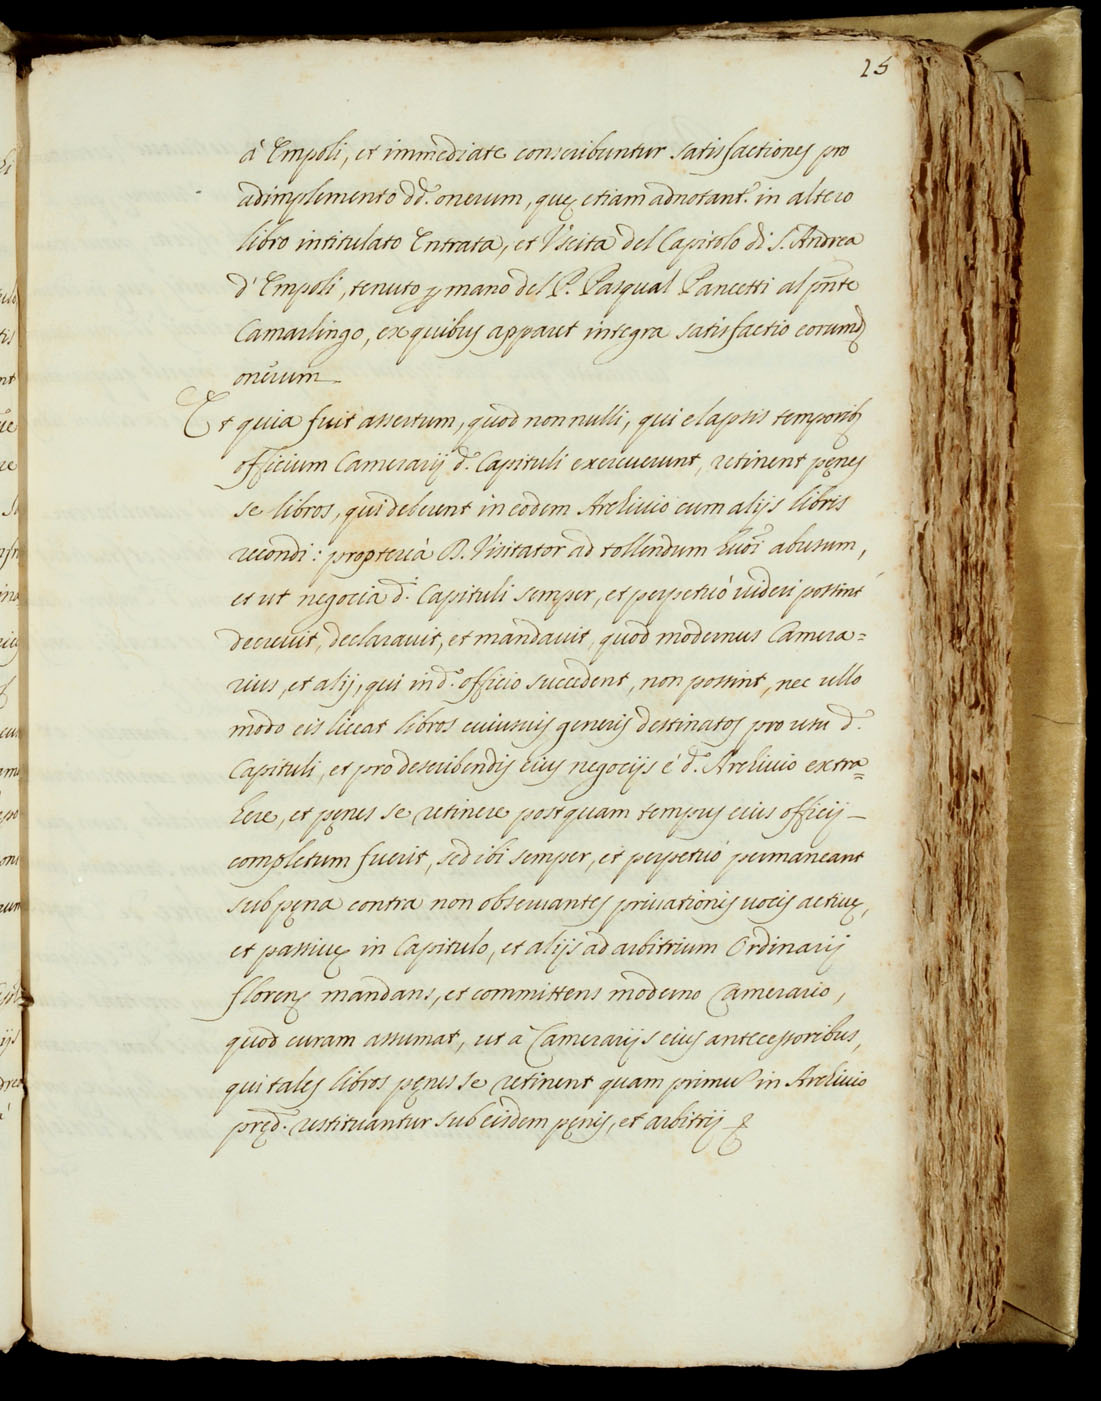 25
à Empoli, et immediate conscribuntur satisfactiones pro
adimplemento dd. onerum, quę etiam adnotant. in altero
libro intitulato Entrata, et Vscita del Capitolo di S. Andrea
d'Empoli, tenuto p mano del P. Pasqual Pancetti al pnte
Camarlingo, ex quibus apparet integra satisfactio eorumd
onerum
Et quia fuit assertum, quod nonnulli, qui elapsis temporib
officium Camerarij d. Capituli exercuerunt, retinent pęnes
se libros, qui deberent in eodem Archiuio cum alijs libris
recondi: proptereà D. Visitator ad tollendum huõi abusum,
et ut negocia d. Capituli semper, et perpetuò uideri possint
decreuit, declarauit, et mandauit, quod modernus Camera=
rius, et alij, qui in d. officio succedent, non possint, nec ullo
modo eis liceat libros cuiusuis generis destinatos pro usu d.
Capituli, et pro describendis eius negocijs è d. Archiuio extra=
here, et pęnes se retinere postquam tempus eius officij
completum fuerit, sed ibi semper, et perpetuò permaneant
sub pęna contra non obseruantes priuationis uocis actiuę,
et passiuę in Capitulo, et alijs ad arbitrium Ordinarij
florenę mandans, et committens moderno Camerario,
quod curam assumat, ut à Camerarijs eius antecessoribus,
qui tales libros pęnes se retinent quam primu in Archiuio
pręd. restituantur sub eisdem pęnis, et arbitrij